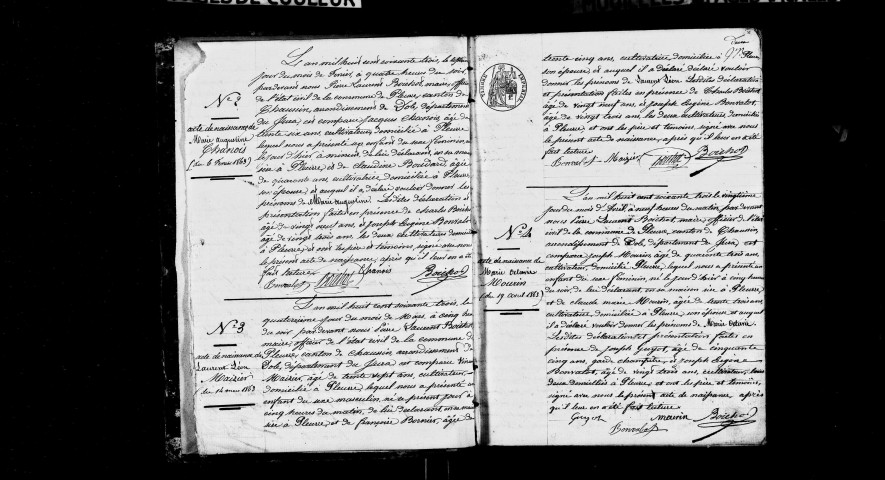 N° 2
acte de naissance de
Marie augustine
Chanois
(du 6 février 1863)
L'an mil huit cent soixante trois, le
jour du mois de février, à quatre heures du soir,
pardevant nous Pierre Laurent Boichot, maire, officier
de l'état civil de la commune de Pleure, canton de
Chaussin, arrondissement de Dole, département
du Jura, est comparu Jacques Chanois, âgé de
trente six ans, cultivateur, domicilié à Pleure
lequel nous a présenté un enfant du sexe féminin
né le jour d'hier à de lui déclarant, en sa maison
sise à Pleure, et de Claudine Boudard, âgée
de quarante ans, cultivatrice domiciliée à Pleure,
son épouse, et auquel il a déclaré vouloir donner les
prénoms de Marie augustine. Lesdites déclaration et
présentation faites en présence de Charles Boichot
âgé de vingt neuf ans, et Joseph Eugène Bonvalot
âgé de vingt trois ans, les deux cultivateurs domiciliés
à Pleure, et ont les père et témoins, signé avec nous le
présent acte de naissance, après qu'il leur en a été
fait lecture.
Bonvalot Boichot Chanois Boichot
N° 3
acte de naissance de
Laurent Léon
Maizier
(du 14 mars 1863)
L'an mil huit cent soixante trois, le
quatorzième jour du mois de Mars, à cinq heures
du soir pardevant nous Pierre Laurent Boichot
maire, officier de l'état civil de la commune de
Pleure, canton de Chaussin arrondissement de
Dole, département du Jura est comparu
Maizier, âgé de trente sept ans, cultivateur,
domicilié à Pleure, lequel nous a présenté un
enfant du sexe masculin, né ce présent jour à
cinq heures du matin, de lui déclarant, en sa maison
sise à Pleure, et de Françoise Bornier, âgée de
trente cinq ans, cultivatrice domiciliée à Pleure,
son épouse et auquel il a déclaré vouloir
donner les prénoms de Laurent Léon. Lesdites déclaration
et présentation faites en présence de Charles Boichot
âgé de vingt neuf ans, et Joseph Eugène Bonvalot,
âgé de vingt trois ans, les deux cultivateurs domiciliés
à Pleure, et ont les père et témoins, signé avec nous
le présent acte de naissance, après qu'il leur en a été
fait lecture
Bonvalot Maizier Boichot Boichot
N° 4
acte de naissance de
Marie Octavie
Mourin
(du 19 avril 1863)
L'an mil huit cent soixante trois le vingtième
jour du mois d'Avril à neuf heures du matin pardevant
nous Pierre Laurent Boichot maire officier de l'état
civil de la commune de Pleure, canton de Chaussin,
arrondissement de Dole, département du Jura est
comparu Joseph Mourin, âgé de quarante trois ans,
cultivateur, domicilié Pleure, lequel nous a présenté un
enfant du sexe féminin, né le jour d'hier à cinq heures
du soir, de lui déclarant, en sa maison sise à Pleure,
et de Claude marie Mourin, âgée de trente trois ans,
cultivatrice domiciliée à Pleure, son épouse et auquel
il a déclaré vouloir donner les prénoms de Marie Octavie.
Lesdites déclaration et présentation faites en
présence de Joseph Guyot, âgé de cinquante
cinq ans, garde champêtre, et Joseph Eugène
Bonvalot, âgé de vingt trois ans, cultivateur, tous
deux domiciliés à Pleure, et ont les père et témoins,
signé avec nous le présent acte de naissance, après
qu'il leur en a été fait lecture.
Guyot Mourin Boichot
Bonvalot